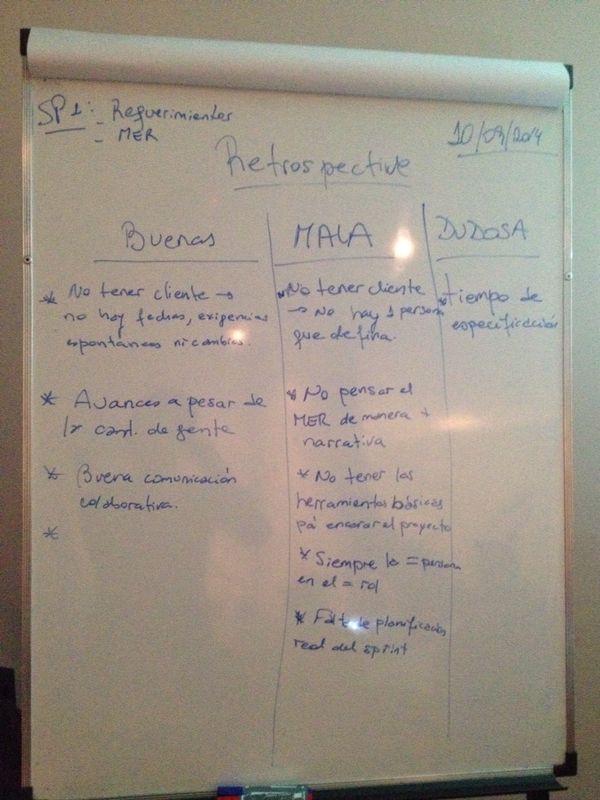 SP1: - Requerimientos
- MER
10/09/2014
Retrospective
Buenas
* No tener cliente →
no hay fechas, exigencias
espontáneas ni cambios.
* Avances a pesar de
la cant. de gente
* Buena comunicación
colaborativa.
*
MALA
* No tener cliente
→ No hay 1 persona
que defina.
* No pensar el
MER de manera +
narrativa
* No tener las
herramientas básicas
pá encarar el proyecto
* Siempre la = persona
en el = rol
* Falta de planificación
real del sprint
DUDOSA
* tiempo de
especificación